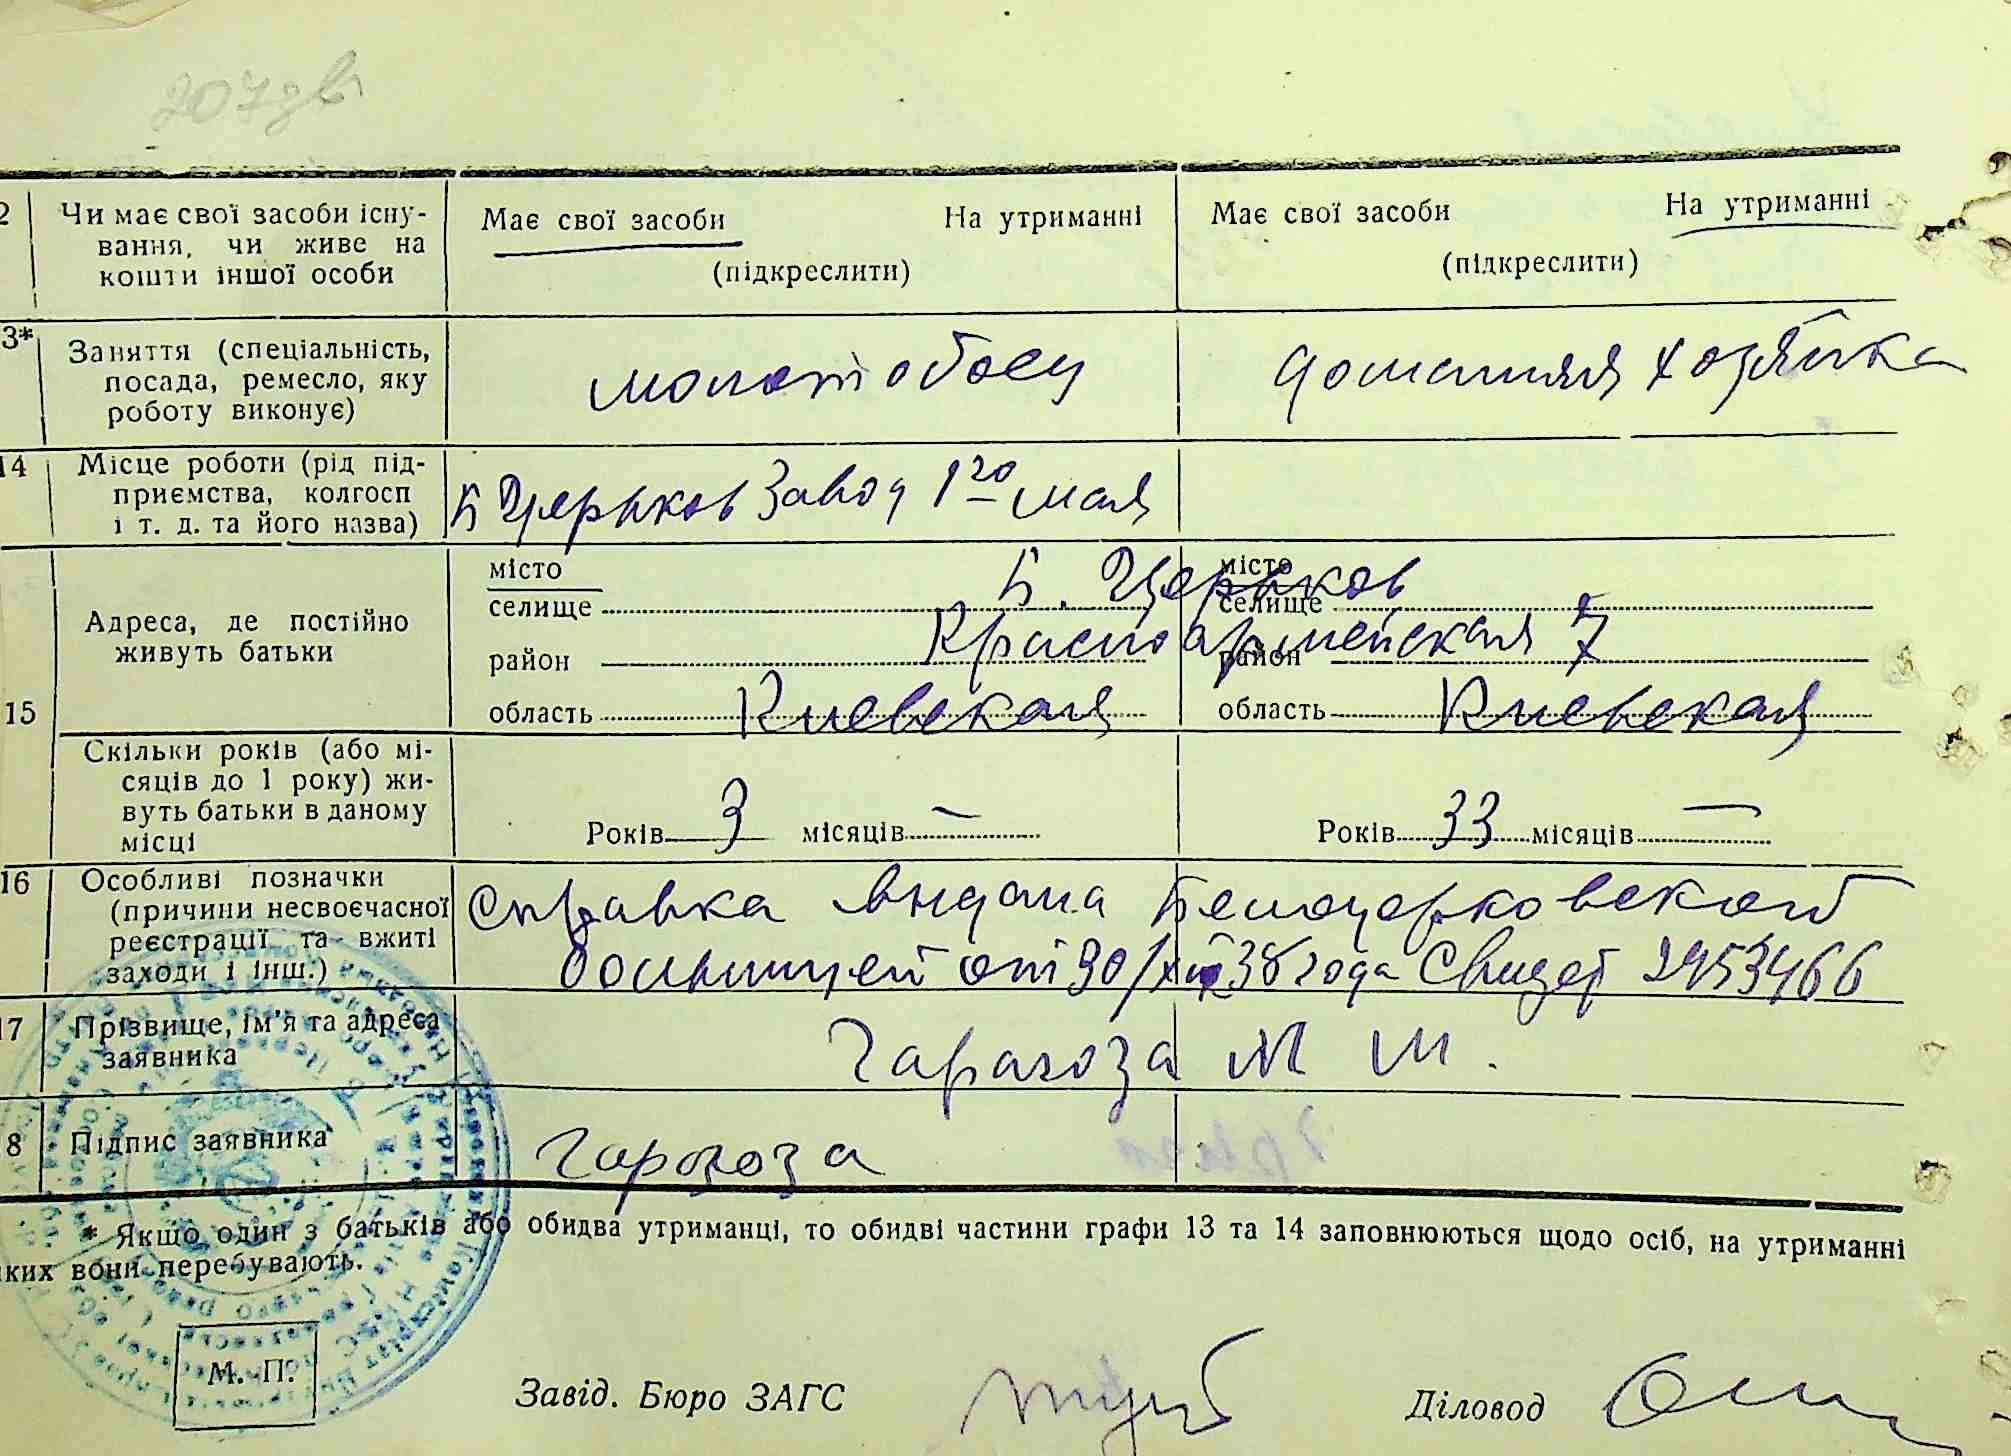 207дв
2 Чи має свої засоби існу-
вання, чи живе на
кошти іншої особи
Має свої засоби На утриманні
(підкреслити)
Має свої засоби На утриманні
(підкреслити)
3* Заняття (спеціальність,
посада, ремесло, яку
роботу виконує)
молотобоец
домашняя хозяйка
14 Місце роботи (рід під-
приємства, колгосп
і т. д. та його назва)
Б Церьков Завод 1го мая
15 Адреса, де постійно
живуть батьки
місто
селище
район
область Киевская
місто
селище
район
область Киевская
Б. Церьков
Красноармейская 7
Скільки років (або мі-
сяців до 1 року) жи-
вуть батьки в даному
місці
Років 3 місяців —
Років 33 місяців —
16 Особливі позначки
(причини несвоєчасної
реєстрації та вжиті
заходи і інш.)
Справка выдана Белоцерковской
больницей от 30/ 38 года Свидет 2453466
17 Прізвище, ім'я та адреса
заявника
Гарагоза М М.
8 Підпис заявника
Гарагоза
* Якщо один з батьків або обидва утриманці, то обидві частини графи 13 та 14 заповнюються щодо осіб, на утриманні
яких вони перебувають.
М. П.
Завід. Бюро ЗАГС
Діловод